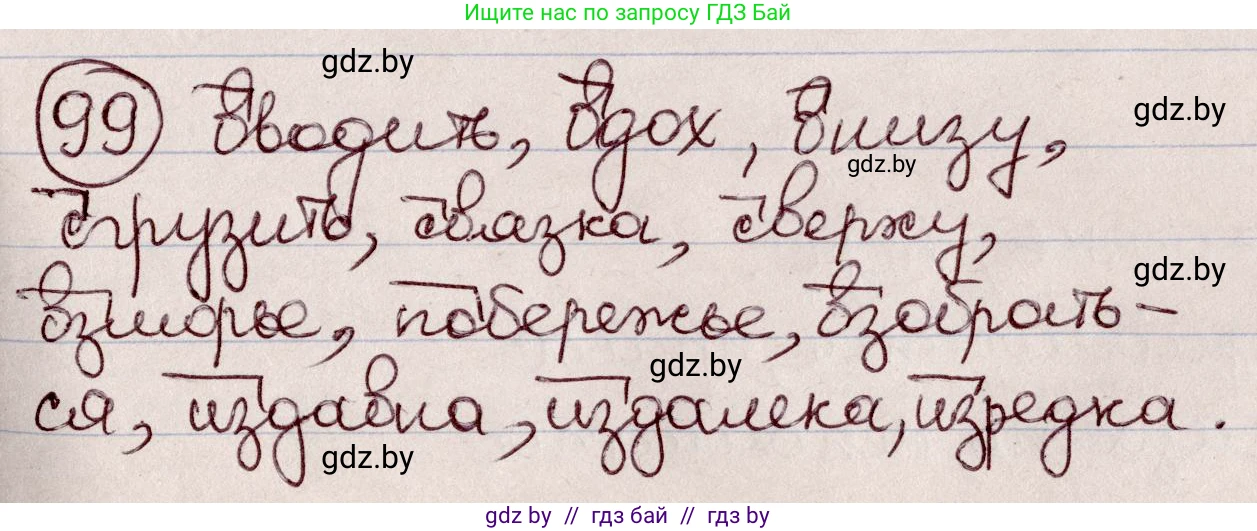 Ищите нас по запросу ГДЗ Бай
gdz.by
99 Вводить, вдох, внизу,
gdz.by
gdz.by
сгрузить, связка, сверху,
gdz.by
взморье, побережье, взобрать-
gdz.by
ся, издавна, издалека, изредка.
gdz.by
gdz by // гдз бай // гдз by